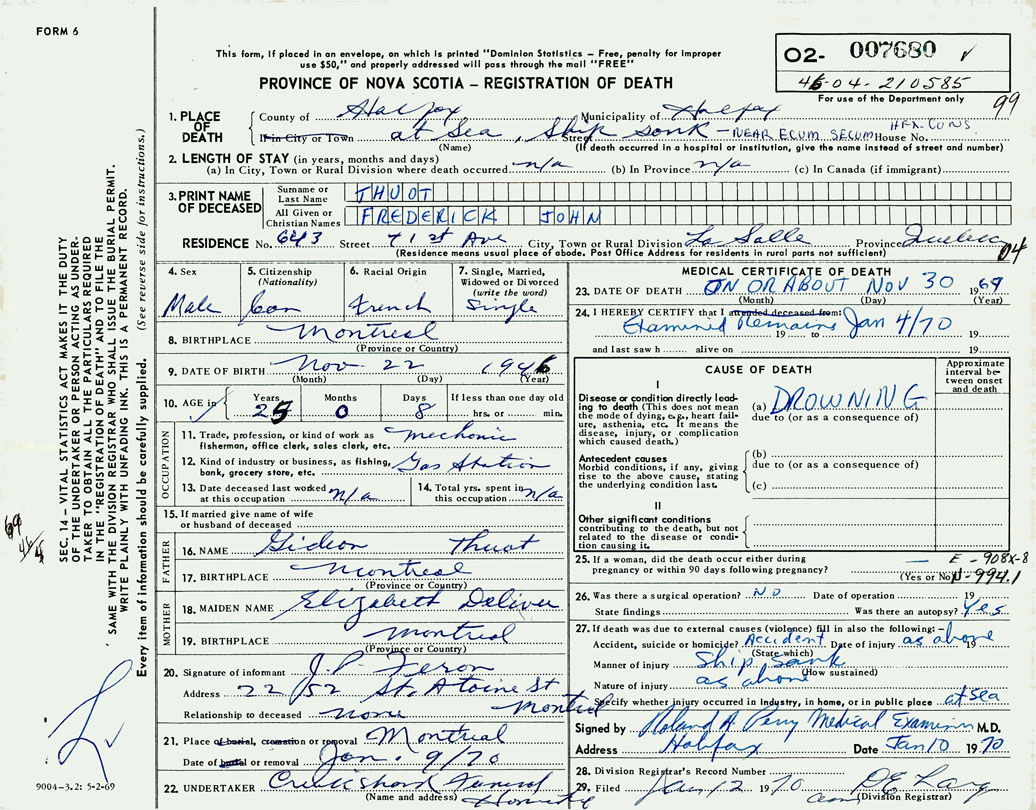 FORM 6
This form, if placed in an envelope, on which is printed "Dominion Statistics — Free, penalty for improper
use $50," and properly addressed will pass through the mail "FREE"
PROVINCE OF NOVA SCOTIA — REGISTRATION OF DEATH
02- 007680 ✓
45-04-210585
For use of the Department only
99
1. PLACE OF DEATH
County of Halifax Municipality of Halifax
If in City or Town at Sea, Ship sank - NEAR ECUM SECUM Street HFX. CONS House No.
(Name) (If death occurred in a hospital or institution, give the name instead of street and number)
2. LENGTH OF STAY (in years, months and days)
(a) In City, Town or Rural Division where death occurred n/a (b) In Province n/a (c) In Canada (if immigrant)
3. PRINT NAME OF DECEASED
Surname or Last Name THUOT
All Given or Christian Names FREDERICK JOHN
RESIDENCE No. 643 Street 71st Ave City, Town or Rural Division La Salle Province Quebec 04
(Residence means usual place of abode. Post Office Address for residents in rural parts not sufficient)
4. Sex Male
5. Citizenship (Nationality) Can
6. Racial Origin French
7. Single, Married, Widowed or Divorced (write the word) Single
8. BIRTHPLACE Montreal
(Province or Country)
9. DATE OF BIRTH Nov. 22 1946
(Month) (Day) (Year)
10. AGE in Years Months Days If less than one day old
✓ 23 0 8 hrs. or min.
OCCUPATION
11. Trade, profession, or kind of work as fisherman, office clerk, sales clerk, etc. mechanic
12. Kind of industry or business, as fishing, bank, grocery store, etc. Gas Station
13. Date deceased last worked at this occupation n/a
14. Total yrs. spent in this occupation n/a
15. If married give name of wife or husband of deceased
FATHER
16. NAME Gideon Thuot
17. BIRTHPLACE Montreal
(Province or Country)
MOTHER
18. MAIDEN NAME Elizabeth
19. BIRTHPLACE Montreal
(Province or Country)
20. Signature of informant J.P.
Address 22 52 St. Atoine St Montreal
Relationship to deceased None
21. Place of burial, cremation or removal Montreal
Date of burial or removal Jan. 9/70
22. UNDERTAKER Cruikshank Funeral
(Name and address)
MEDICAL CERTIFICATE OF DEATH
23. DATE OF DEATH ON OR ABOUT NOV 30 1969
(Month) (Day) (Year)
24. I HEREBY CERTIFY that I attended deceased from:
Examined Remains Jan 4/70
19 to 19
and last saw h alive on 19
CAUSE OF DEATH
Approximate interval between onset and death
I
Disease or condition directly leading to death (This does not mean the mode of dying, e.g., heart failure, asthenia, etc. It means the disease, injury, or complication which caused death.)
(a) DROWNING
due to (or as a consequence of)
Antecedent causes
Morbid conditions, if any, giving rise to the above cause, stating the underlying condition last.
(b)
due to (or as a consequence of)
(c)
II
Other significant conditions
contributing to the death, but not related to the disease or condition causing it.
25. If a woman, did the death occur either during pregnancy or within 90 days following pregnancy? —
(Yes or No)
E - 908X-8
N - 994.1
26. Was there a surgical operation? NO Date of operation 19
State findings Was there an autopsy? Yes
27. If death was due to external causes (violence) fill in also the following:—
Accident, suicide or homicide? Accident Date of injury as above 19
(State which)
Manner of injury Ship Sank
(How sustained)
Nature of injury as above
Specify whether injury occurred in Industry, in home, or in public place at sea
Signed by Roland A. Perry Medical Examiner M.D.
Address Halifax Date Jan 10 1970
28. Division Registrar's Record Number
29. Filed Jan 12 1970
(Division Registrar)
SEC. 14 — VITAL STATISTICS ACT MAKES IT THE DUTY
OF THE UNDERTAKER OR PERSON ACTING AS UNDER-
TAKER TO OBTAIN ALL THE PARTICULARS REQUIRED
IN THE "REGISTRATION OF DEATH" AND TO FILE THE
SAME WITH THE DIVISION REGISTRAR WHO SHALL ISSUE THE BURIAL PERMIT.
WRITE PLAINLY WITH UNFADING INK. THIS IS A PERMANENT RECORD.
Every item of information should be carefully supplied. (See reverse side for instructions.)
69
46
9004-3.2: 5-2-69